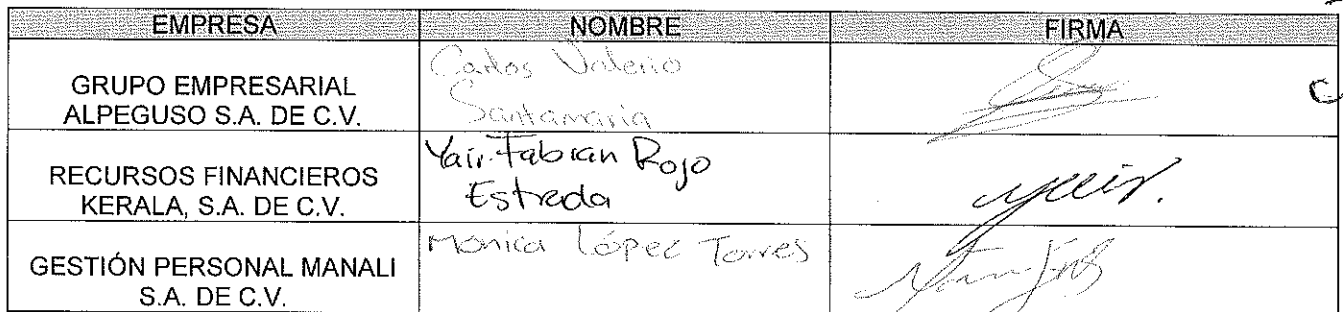 EMPRESA NOMBRE FIRMA
GRUPO EMPRESARIAL
ALPEGUSO S.A. DE C.V.
Carlos Valerio
Santamaria
RECURSOS FINANCIEROS
KERALA, S.A. DE C.V.
Yair Fabian Rojo
Estrada
yair.
GESTIÓN PERSONAL MANALI
S.A. DE C.V.
Monica López Torres